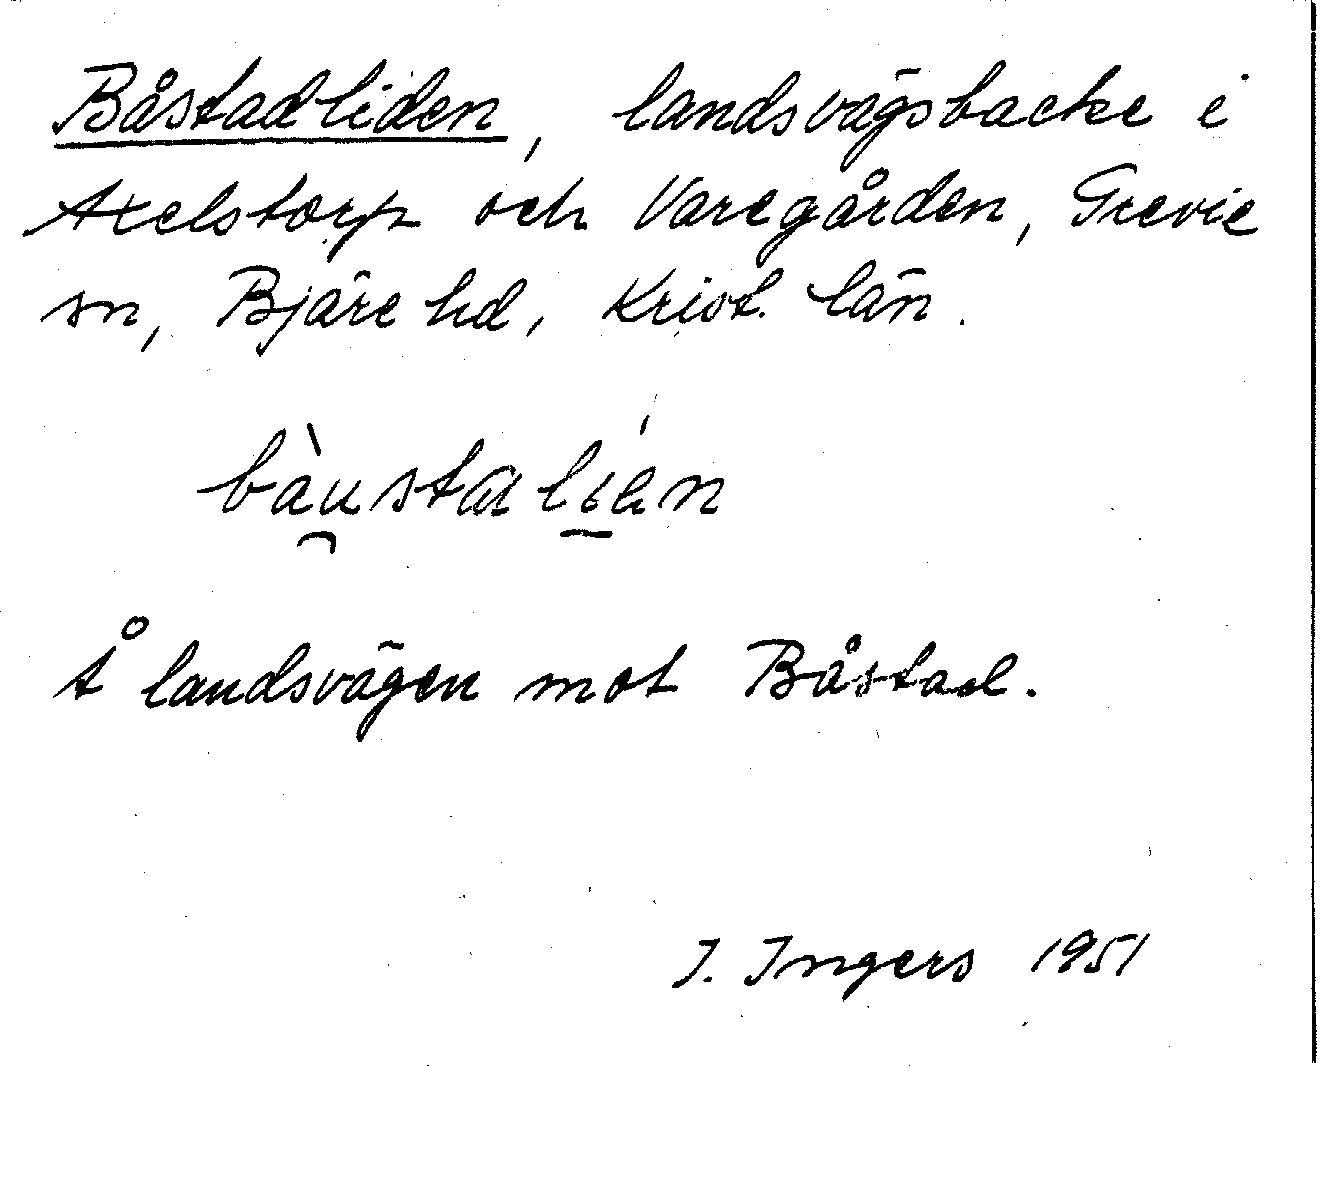 Båstadliden, landsvägsbacke i
Axelstorp och Varegården, Grevie
sn, Bjäre hd, Krist. län.
bàu̯stalíen
Å landsvägen mot Båstad.
I. Ingers 1951